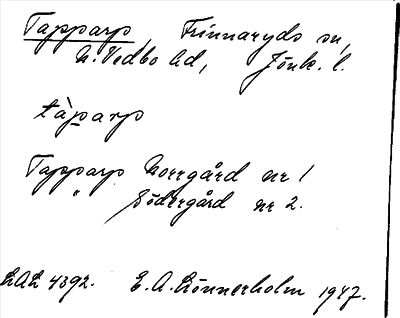 Tapparp, Frinnaryds sn,
N. Vedbo hd, Jönk. l.
tàp̲arp
Tapparp Norrgård nr 1
" Södergård nr 2.
LAL 4392. E. A. Lönnerholm 1947.